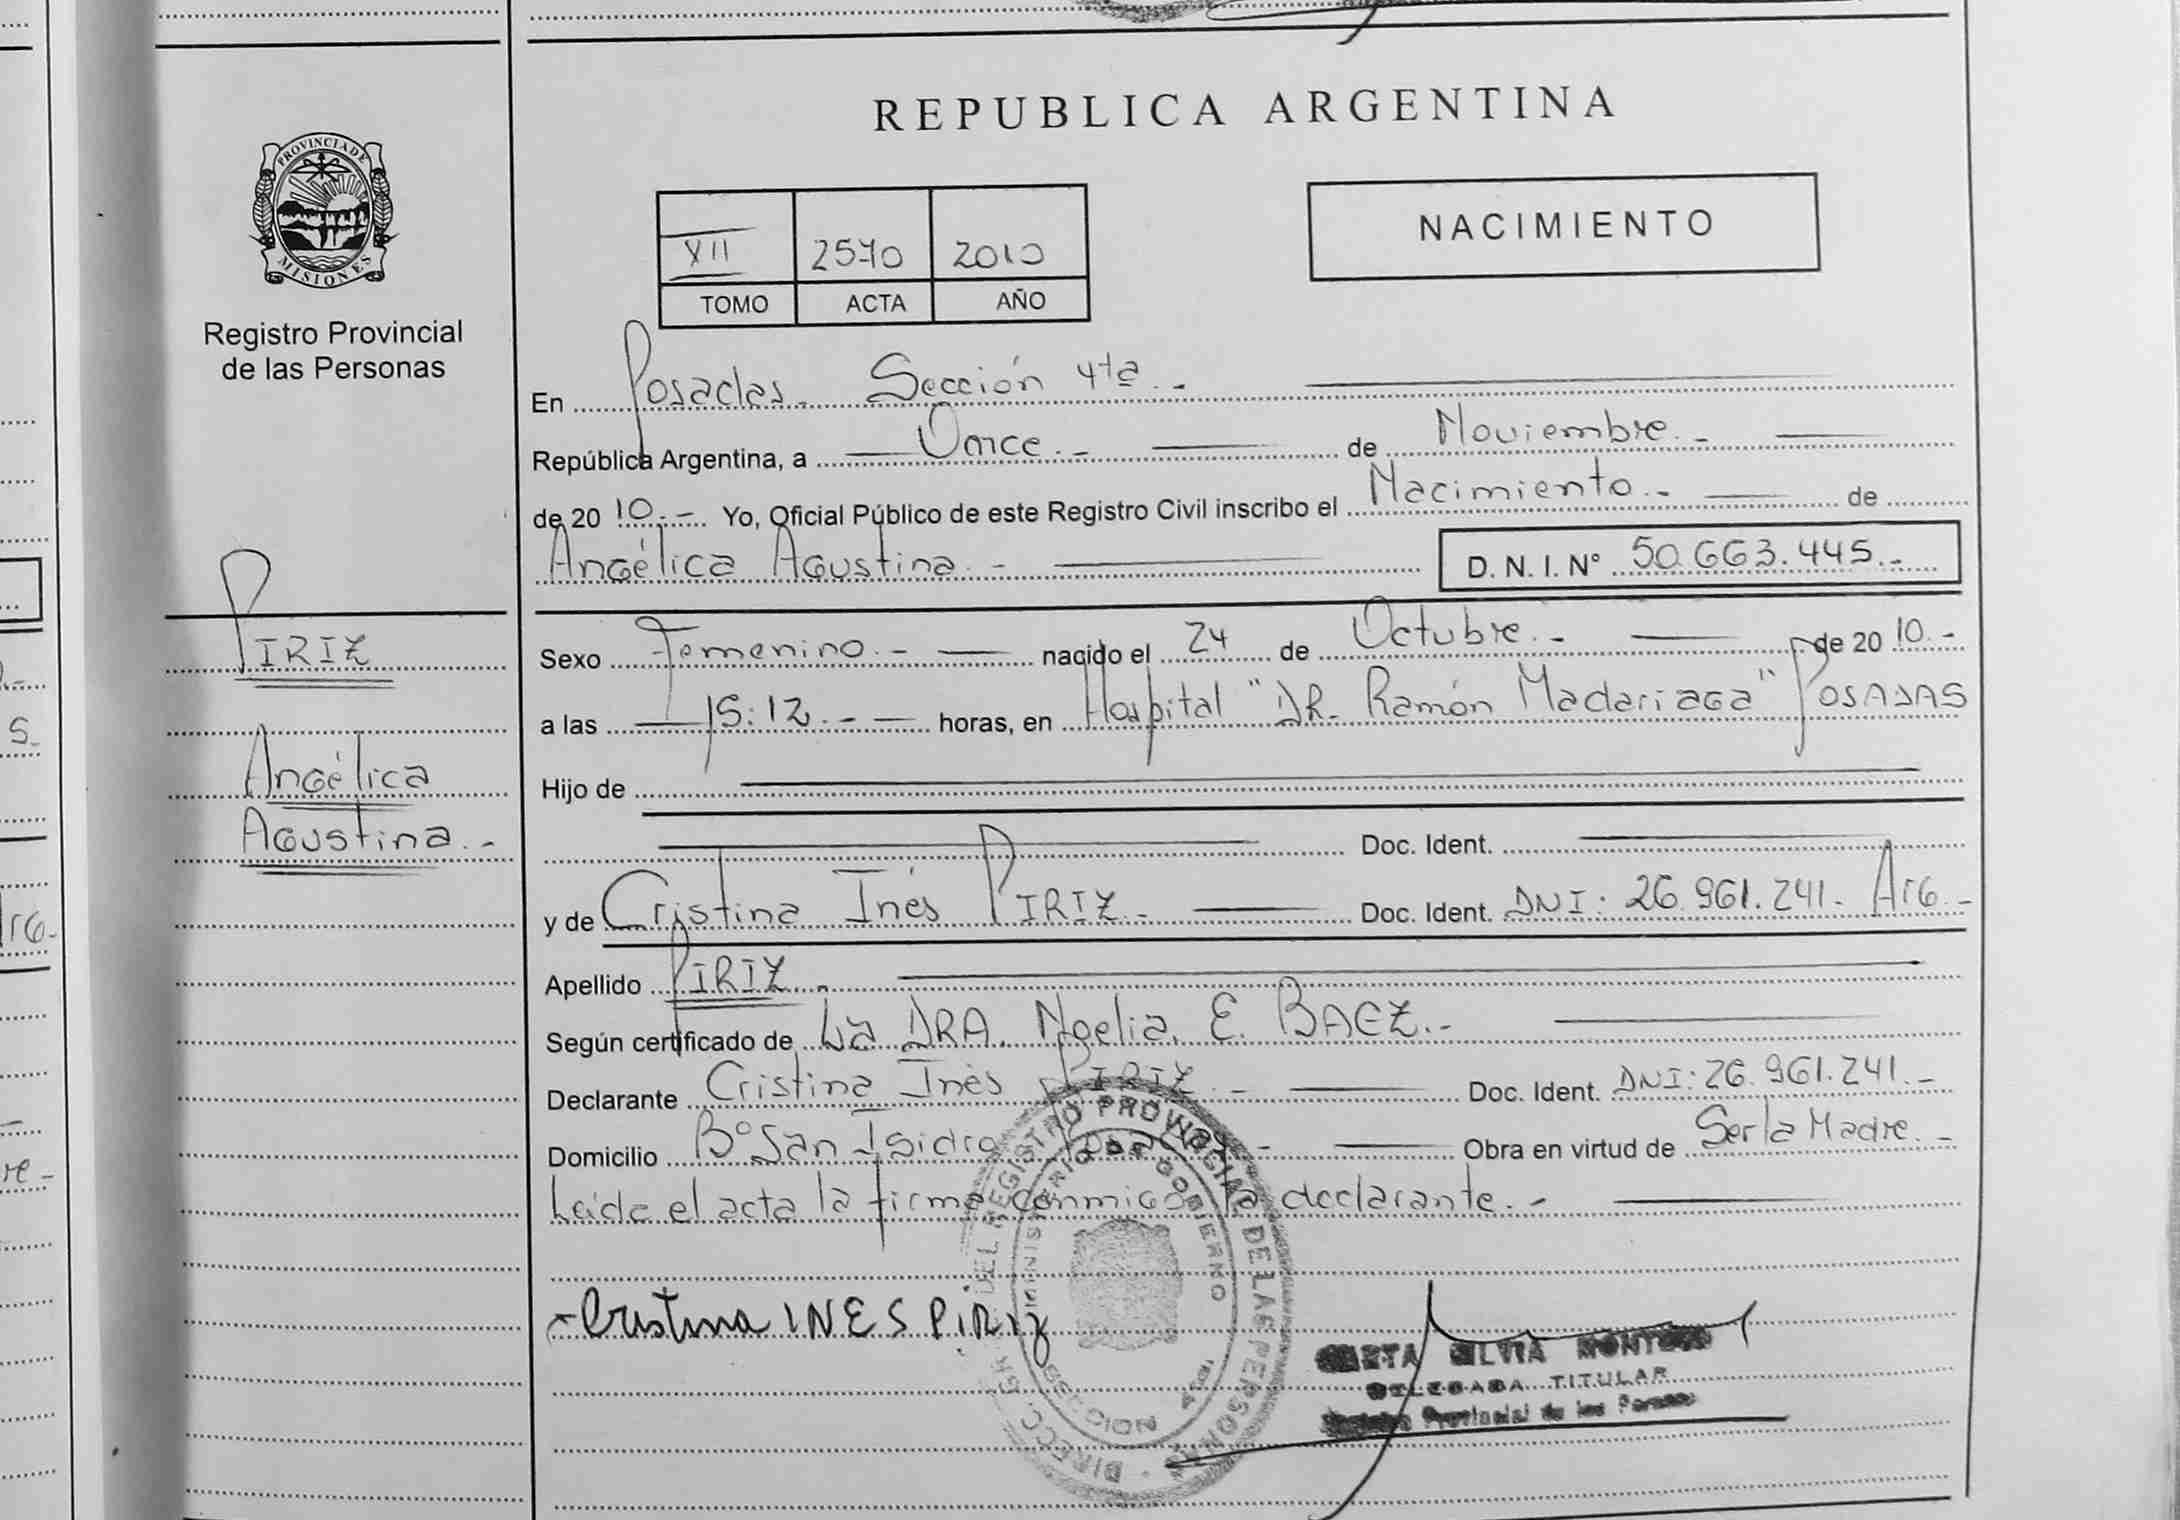 REPUBLICA ARGENTINA
PROVINCIA DE
MISIONES
Registro Provincial
de las Personas
XII 2570 2010
TOMO ACTA AÑO
NACIMIENTO
En Posadas. Sección 4ta.-
República Argentina, a Once.- de Noviembre.-
de 20 10.- Yo, Oficial Público de este Registro Civil inscribo el Nacimiento.- de
Angélica Agustina.- D. N. I. N° 50.663.445.-
PIRIZ
Angélica
Agustina.-
Sexo Femenino.- nacido el 24 de Octubre.- de 20 10.-
a las 15:12.- horas, en Hospital "DR. Ramón Madariaga" POSADAS
Hijo de
Doc. Ident.
y de Cristina Inés PIRIZ.- Doc. Ident. DNI: 26.961.241. Arg.-
Apellido PIRIZ.
Según certificado de La DRA. Noelia. E. BAEZ.-
Declarante Cristina Inés PIRIZ.- Doc. Ident. DNI: 26.961.241.-
Domicilio B° San Isidro - Obra en virtud de Ser la Madre.-
Leída el acta la firma conmigo la declarante.-
Cristina INES PIRIZ
DIRECC. GRAL DEL REGISTRO PROVINCIAL DE LAS PERSONAS
MINISTERIO DE GOBIERNO
SILVIA
DELEGADA TITULAR
Provincial de las Personas
S.
Arg.-
re-